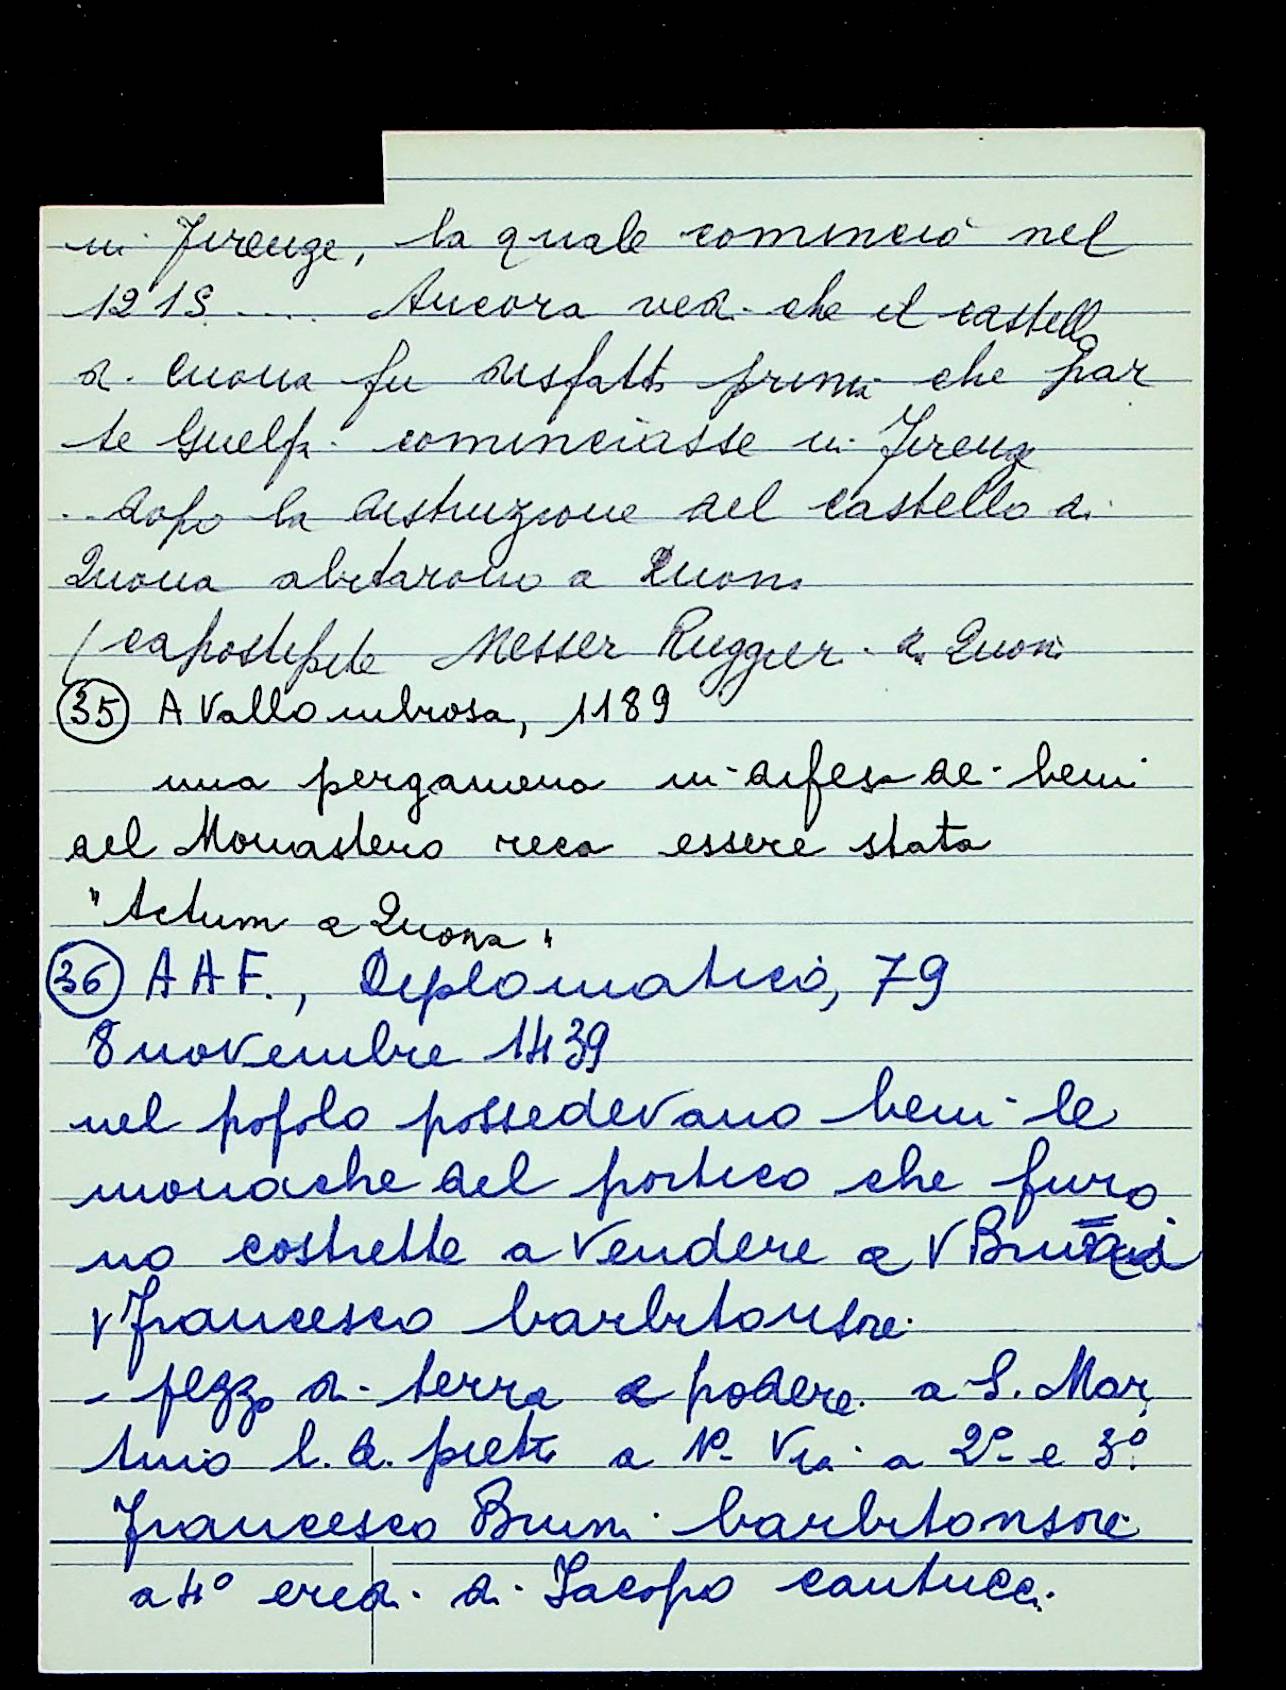 in Firenze, la quale cominciò nel
1215 .... Ancora vedi che il castello
di Cuona fu disfatto prima che par
te Guelfa cominciasse in Firenze
.. dopo la distruzione del castello di
Quona abitarono a Quona
(capostipite Messer Ruggieri da Quona
35 A Vallombrosa, 1189
una pergamena in difesa dei beni
del Monastero reca essere stata
"Actum a Quona"
36 A A F., Diplomatico, 79
8 novembre 1439
nel popolo possedevano beni le
monache del portico che furo
no costrette a vendere a Bruni
Francesco barbitonsore
- pezzo di terra a podere a S. Mar
tino l. d. a 1° Via a 2° e 3°
Francesco Bruni barbitonsore
a 4° eredi di Jacopo Cantucci